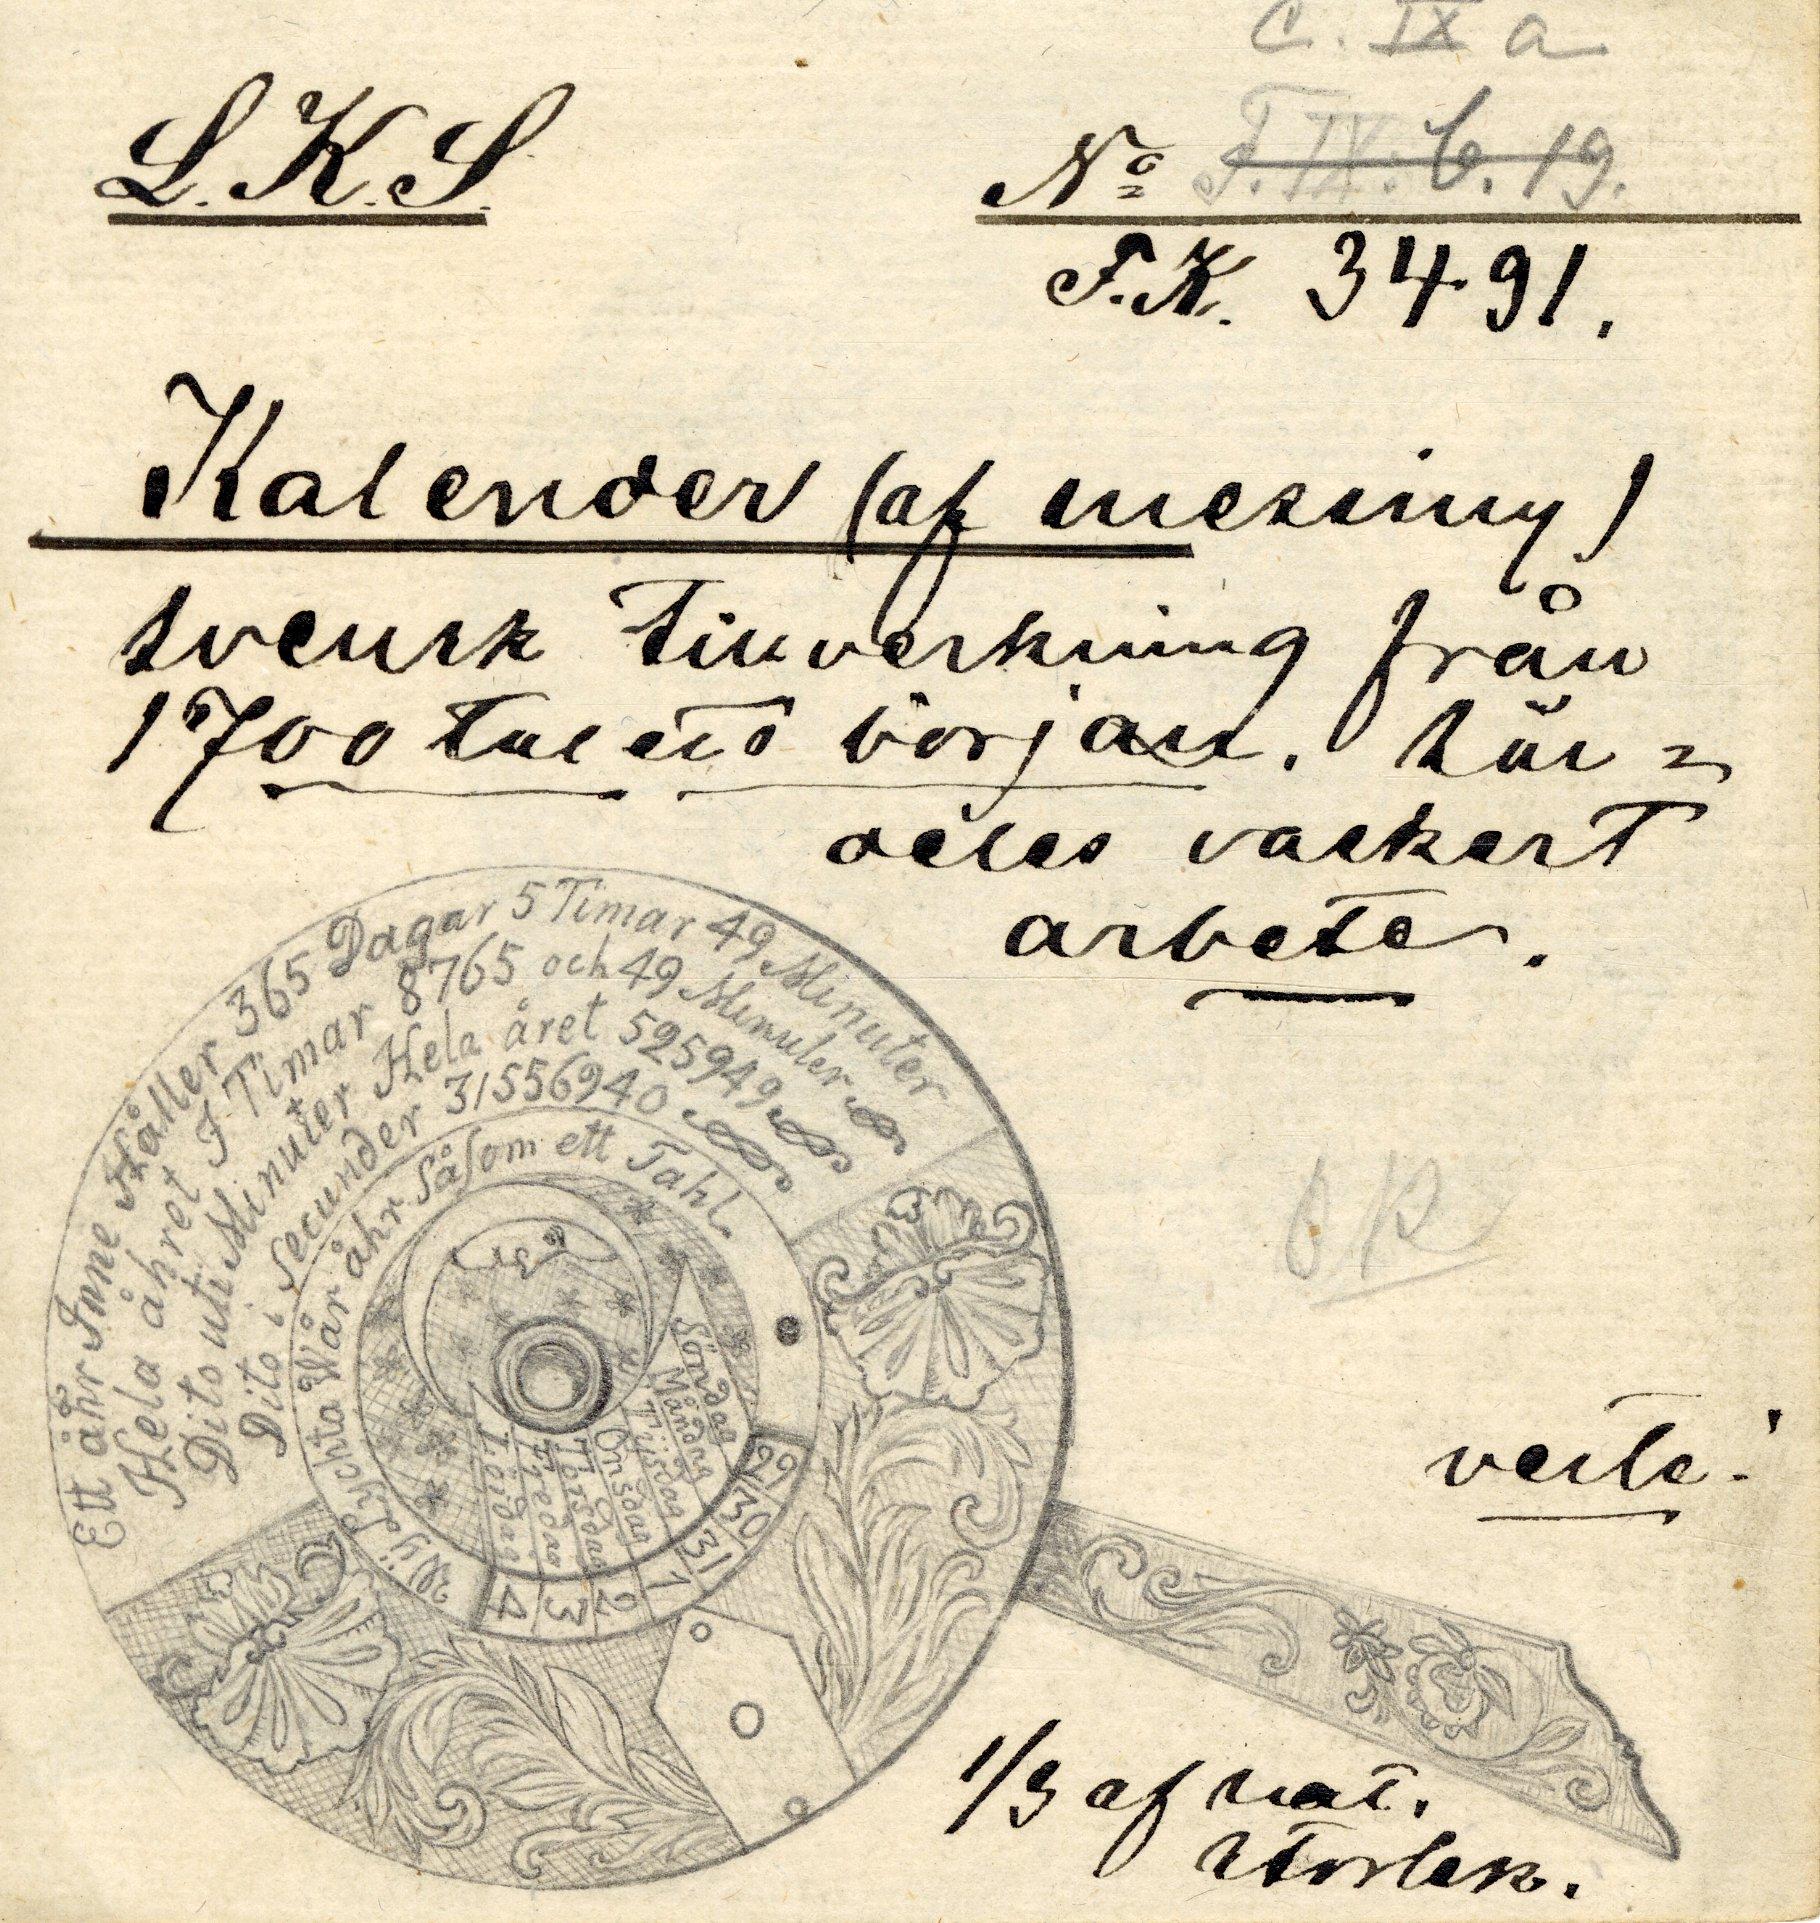 C. IX a
L.K.S.
No F.IX.b.19.
F.K. 3491.
Kalender (af messing)
svensk tillverkning från
1700 talets början. Sär=
deles vackert
arbete.
Ett åhr Inne Håller 365 Dagar 5 Timar 49 Minuter
Hela åhret I Timar 8765 och 49 Minuter
Dito uti Minuter Hela året 525949
Dito i Secunder 31556940
Lychta Wår åhr Såsom ett Tahl.
Söndag
Måndag
Tijsdag
Onsdag
Torsdag
Fredag
Lördag
29 30 31 1 2 3 4
verte!
1/3 af nat.
storlek.